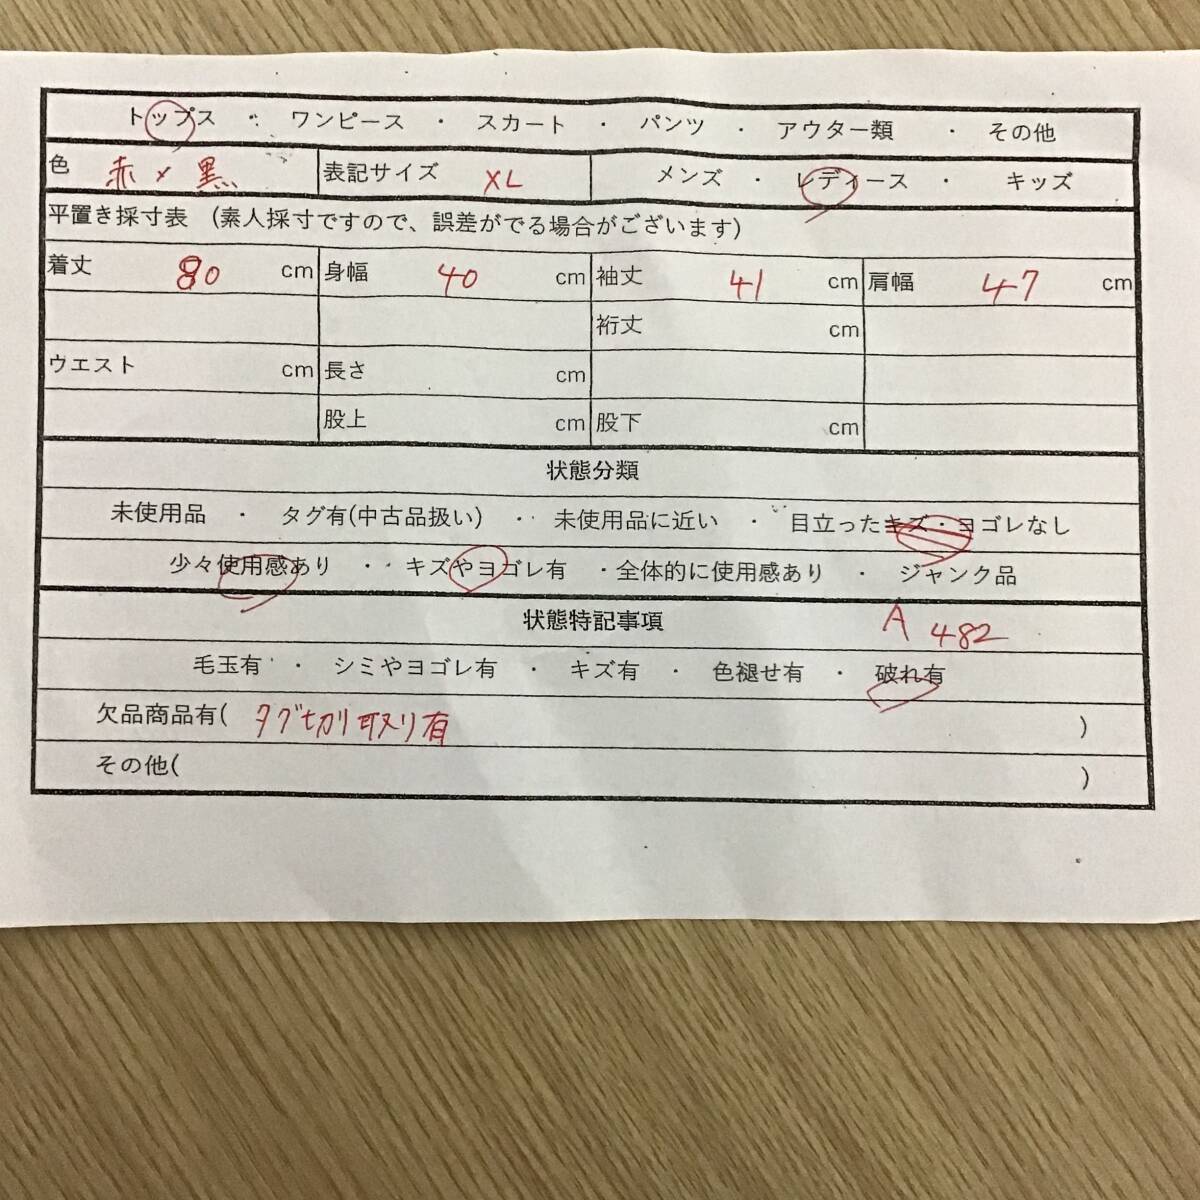 トップス ・ ワンピース ・ スカート ・ パンツ ・ アウター類 ・ その他
色 赤×黒 表記サイズ XL メンズ ・ レディース ・ キッズ
平置き採寸表 (素人採寸ですので、誤差がでる場合がございます)
着丈 80 cm 身幅 40 cm 袖丈 41 cm 肩幅 47 cm
裄丈 cm
ウエスト cm 長さ cm
股上 cm 股下 cm
状態分類
未使用品 ・ タグ有(中古品扱い) ・ 未使用品に近い ・ 目立ったキズ・ヨゴレなし
少々使用感あり ・・ キズやヨゴレ有 ・全体的に使用感あり ・ ジャンク品
状態特記事項 A 482
毛玉有 ・ シミやヨゴレ有 ・ キズ有 ・ 色褪せ有 ・ 破れ有
欠品商品有( タグ切り取り有 )
その他( )